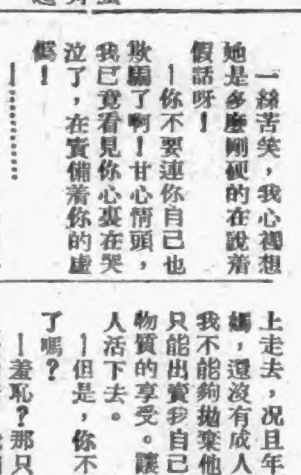 一絲苦笑，我心裡想
她是多麼剛硬的在說着
假話呀！
—你不要連你自己也
欺騙了啊！甘心情願，
我已竟看見你心裏在哭
泣了，在責備着你的虛
僞！
—…………
上走去，况且年
媽，還沒有成人
我不能夠拋棄他
只能出賣我自己
物質的享受。讓
人活下去。
—但是，你不
了嗎？
—羞恥？那只